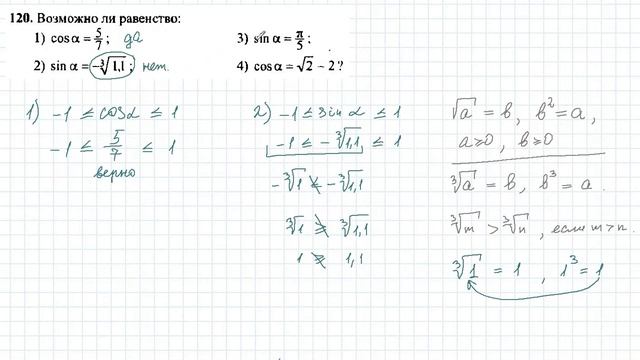 120. Возможно ли равенство:
1) cos α = 5/7 ; да
2) sin α = -∛1,1 ; нет.
3) sin α = π/5 ;
4) cos α = √2 – 2 ?
1) -1 ≤ cos α ≤ 1
-1 ≤ 5/7 ≤ 1
верно
2) -1 ≤ sin α ≤ 1
-1 ≤ -∛1,1 ≤ 1
-∛1 ≰ -∛1,1
∛1 ≱ ∛1,1
1 ≱ 1,1
√a = b, b² = a,
a ≥ 0, b ≥ 0
∛a = b, b³ = a.
∛m > ∛n, если m > n.
∛1 = 1 , 1³ = 1